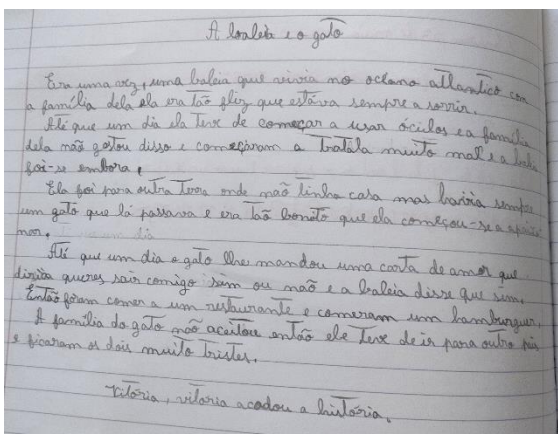 A baleia e o gato
Era uma vez, uma baleia que vivia no oceano atlantico com
a família dela ela era tão fliz que estáva sempre a sorrir.
Até que um dia ela teve de começar a usar óculos e a família
dela não gostou disso e começaram a tratála muito mal e a baleia
foi-se embora.
Ela foi para outra terra onde não tinha casa mas havia sempre
um gato que lá passava e era tão bonito que ela começou-se a apaixo
nar.
Até que um dia o gato lhe mandou uma carta de amor que
dizia queres sair comigo sim ou não e a baleia disse que sim.
Então foram comer a um restaurante e comeram um hamburguer.
A família do gato não aceitou então ele teve de ir para outro país
e ficaram os dois muito tristes.
Vitória, vitória acadou a história.